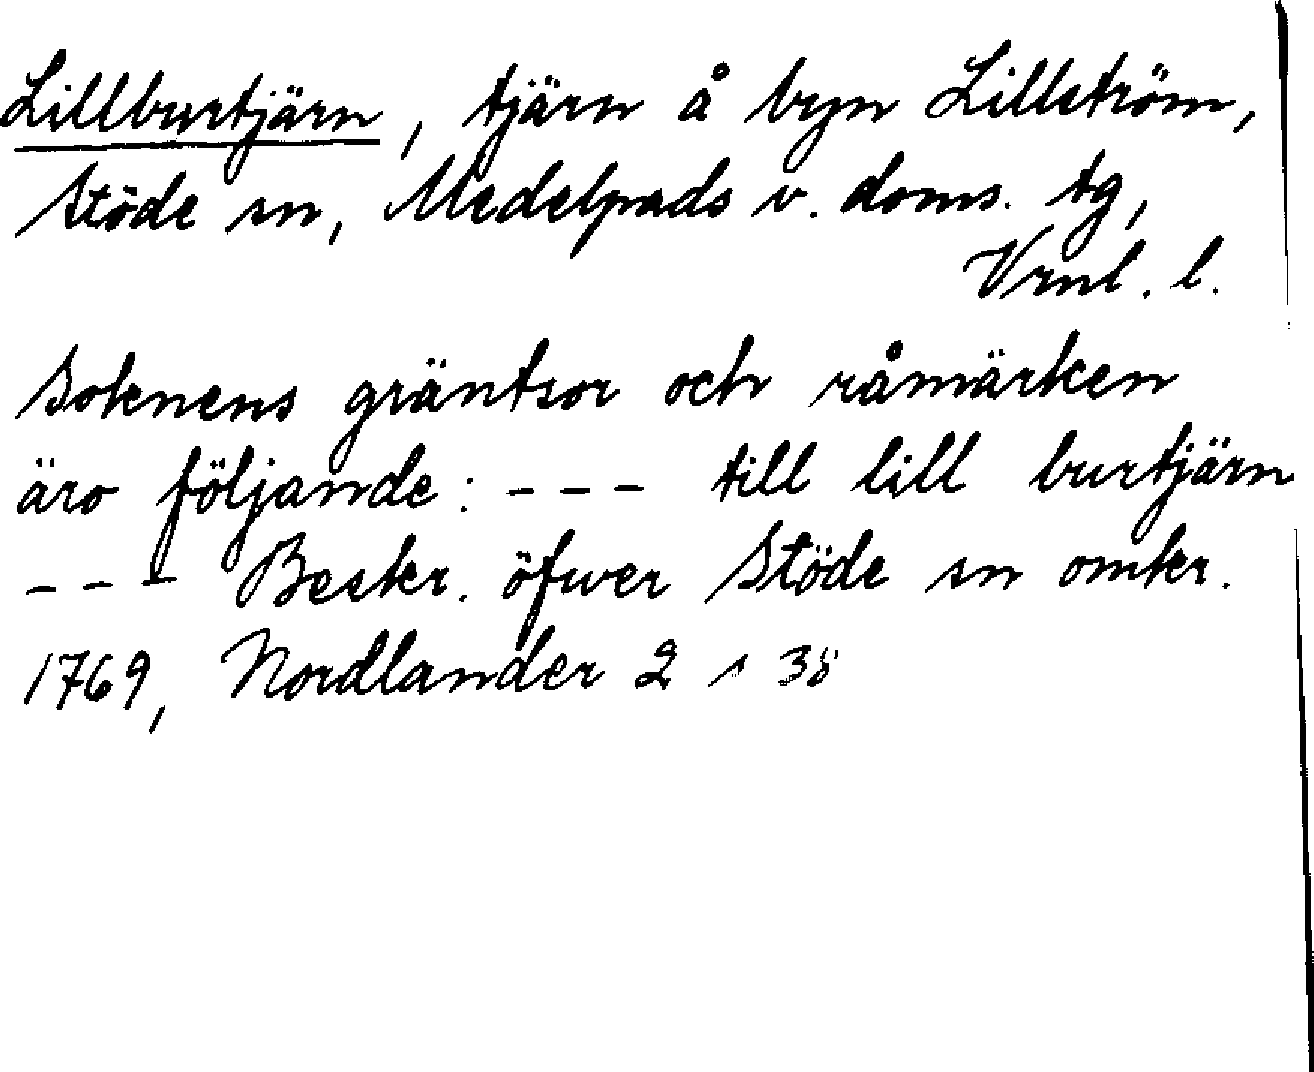 Lillburtjärn, tjärn å byn Lillström,
Stöde sn, Medelpads v. doms. tg,
Vrnl. l.
Soknens gräntsor och råmärken
äro följande: - - - till lill burtjärn
- - - Beskr. öfwer Stöde sn omkr.
1769, Nordlander 2 s 38